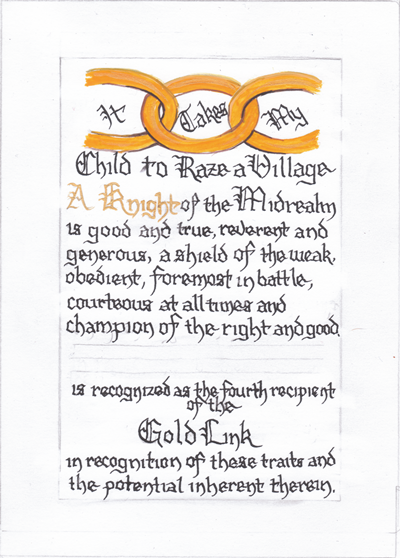 It Takes My
Child to Raze a Village
A Knight of the Midrealm
is good and true, reverent and
generous, a shield of the weak,
obedient, foremost in battle,
courteous at all times and
champion of the right and good.
is recognized as the fourth recipient
of the
Gold Link
in recognition of these traits and
the potential inherent therein.